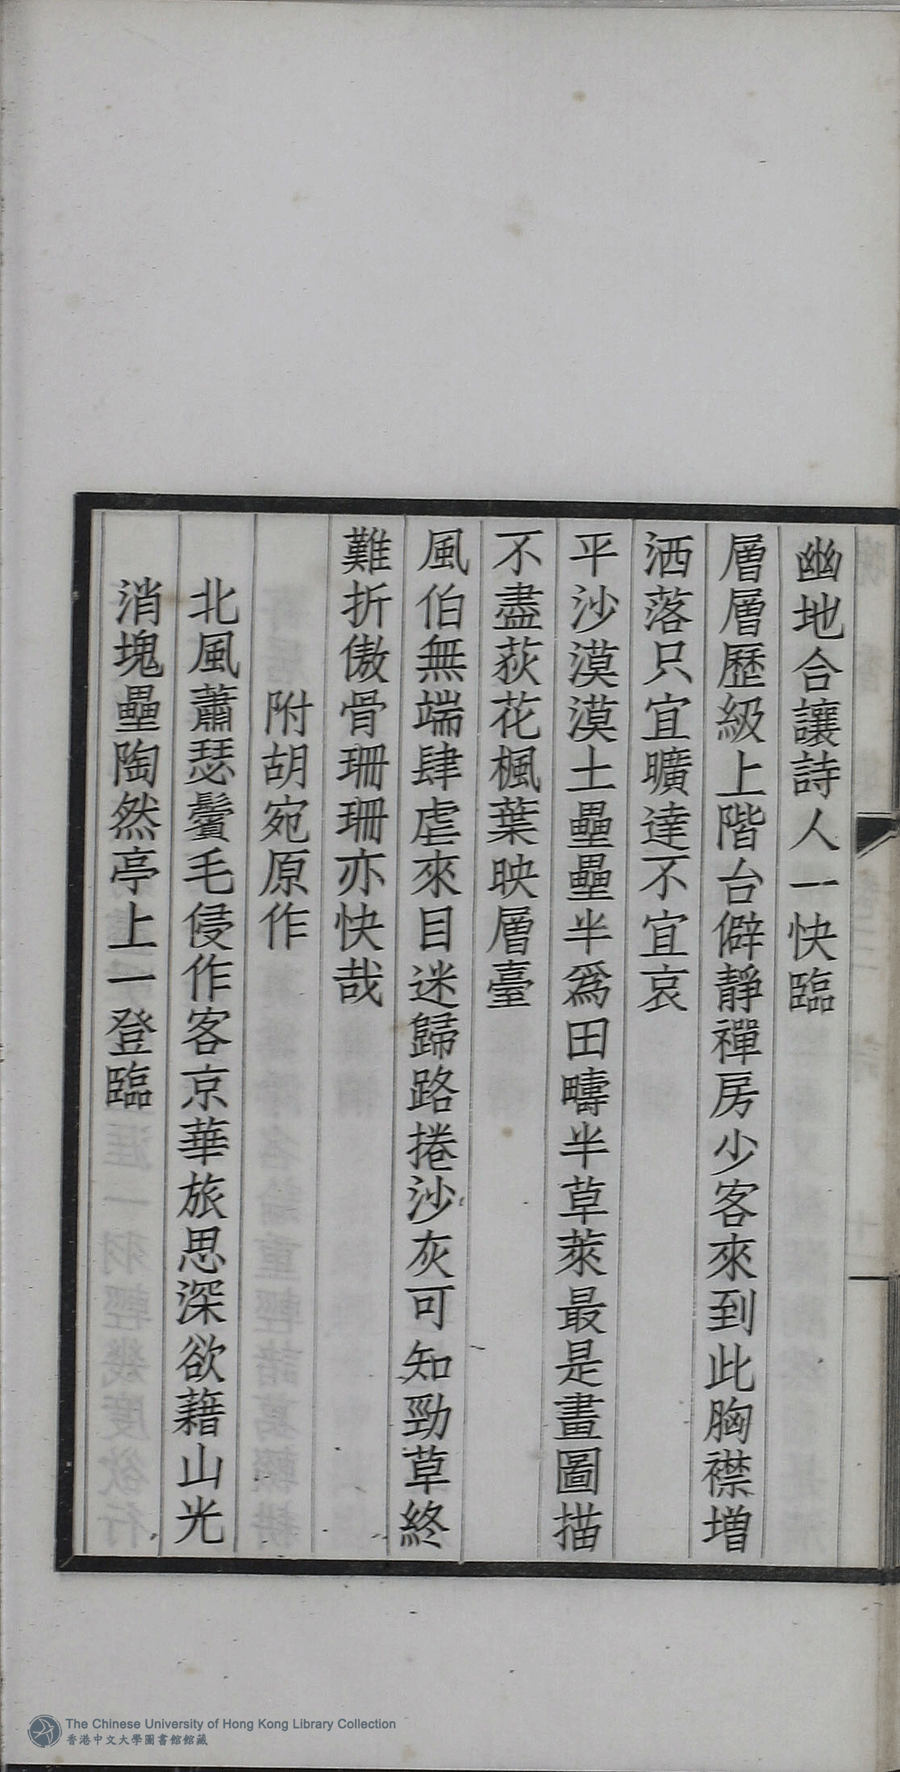 幽地合讓詩人一快臨
層層歷級上階台僻靜禪房少客來到此胸襟增
洒落只宜曠達不宜哀
平沙漠漠土壘壘半爲田疇半草萊最是畫圖描
不盡荻花楓葉映層臺
風伯無端肆虐來目迷歸路捲沙灰可知勁草終
難折傲骨珊珊亦快哉
附胡宛原作
北風蕭瑟鬢毛侵作客京華旅思深欲藉山光
消塊壘陶然亭上一登臨
The Chinese University of Hong Kong Library Collection
香港中文大學圖書館館藏